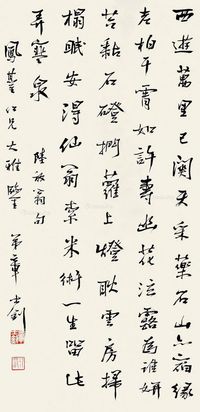 西遊萬里已關天采藥名山亦宿緣
老柏干霄如許壽幽花泣露為誰妍
苔黏石磴捫蘿上燈耿雲房掃
榻眠安得仙翁索米術一生留此
弄寒泉 陸放翁句
鳳仁兄大雅 弟章士釗